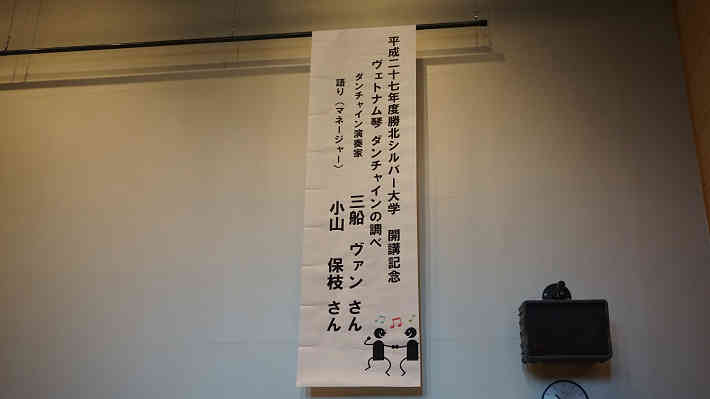 平成二十七年度勝北シルバー大学　開講記念
ヴェトナム琴　ダンチャインの調べ
ダンチャイン演奏家　三船　ヴァン　さん
語り（マネージャー）　小山　保枝　さん